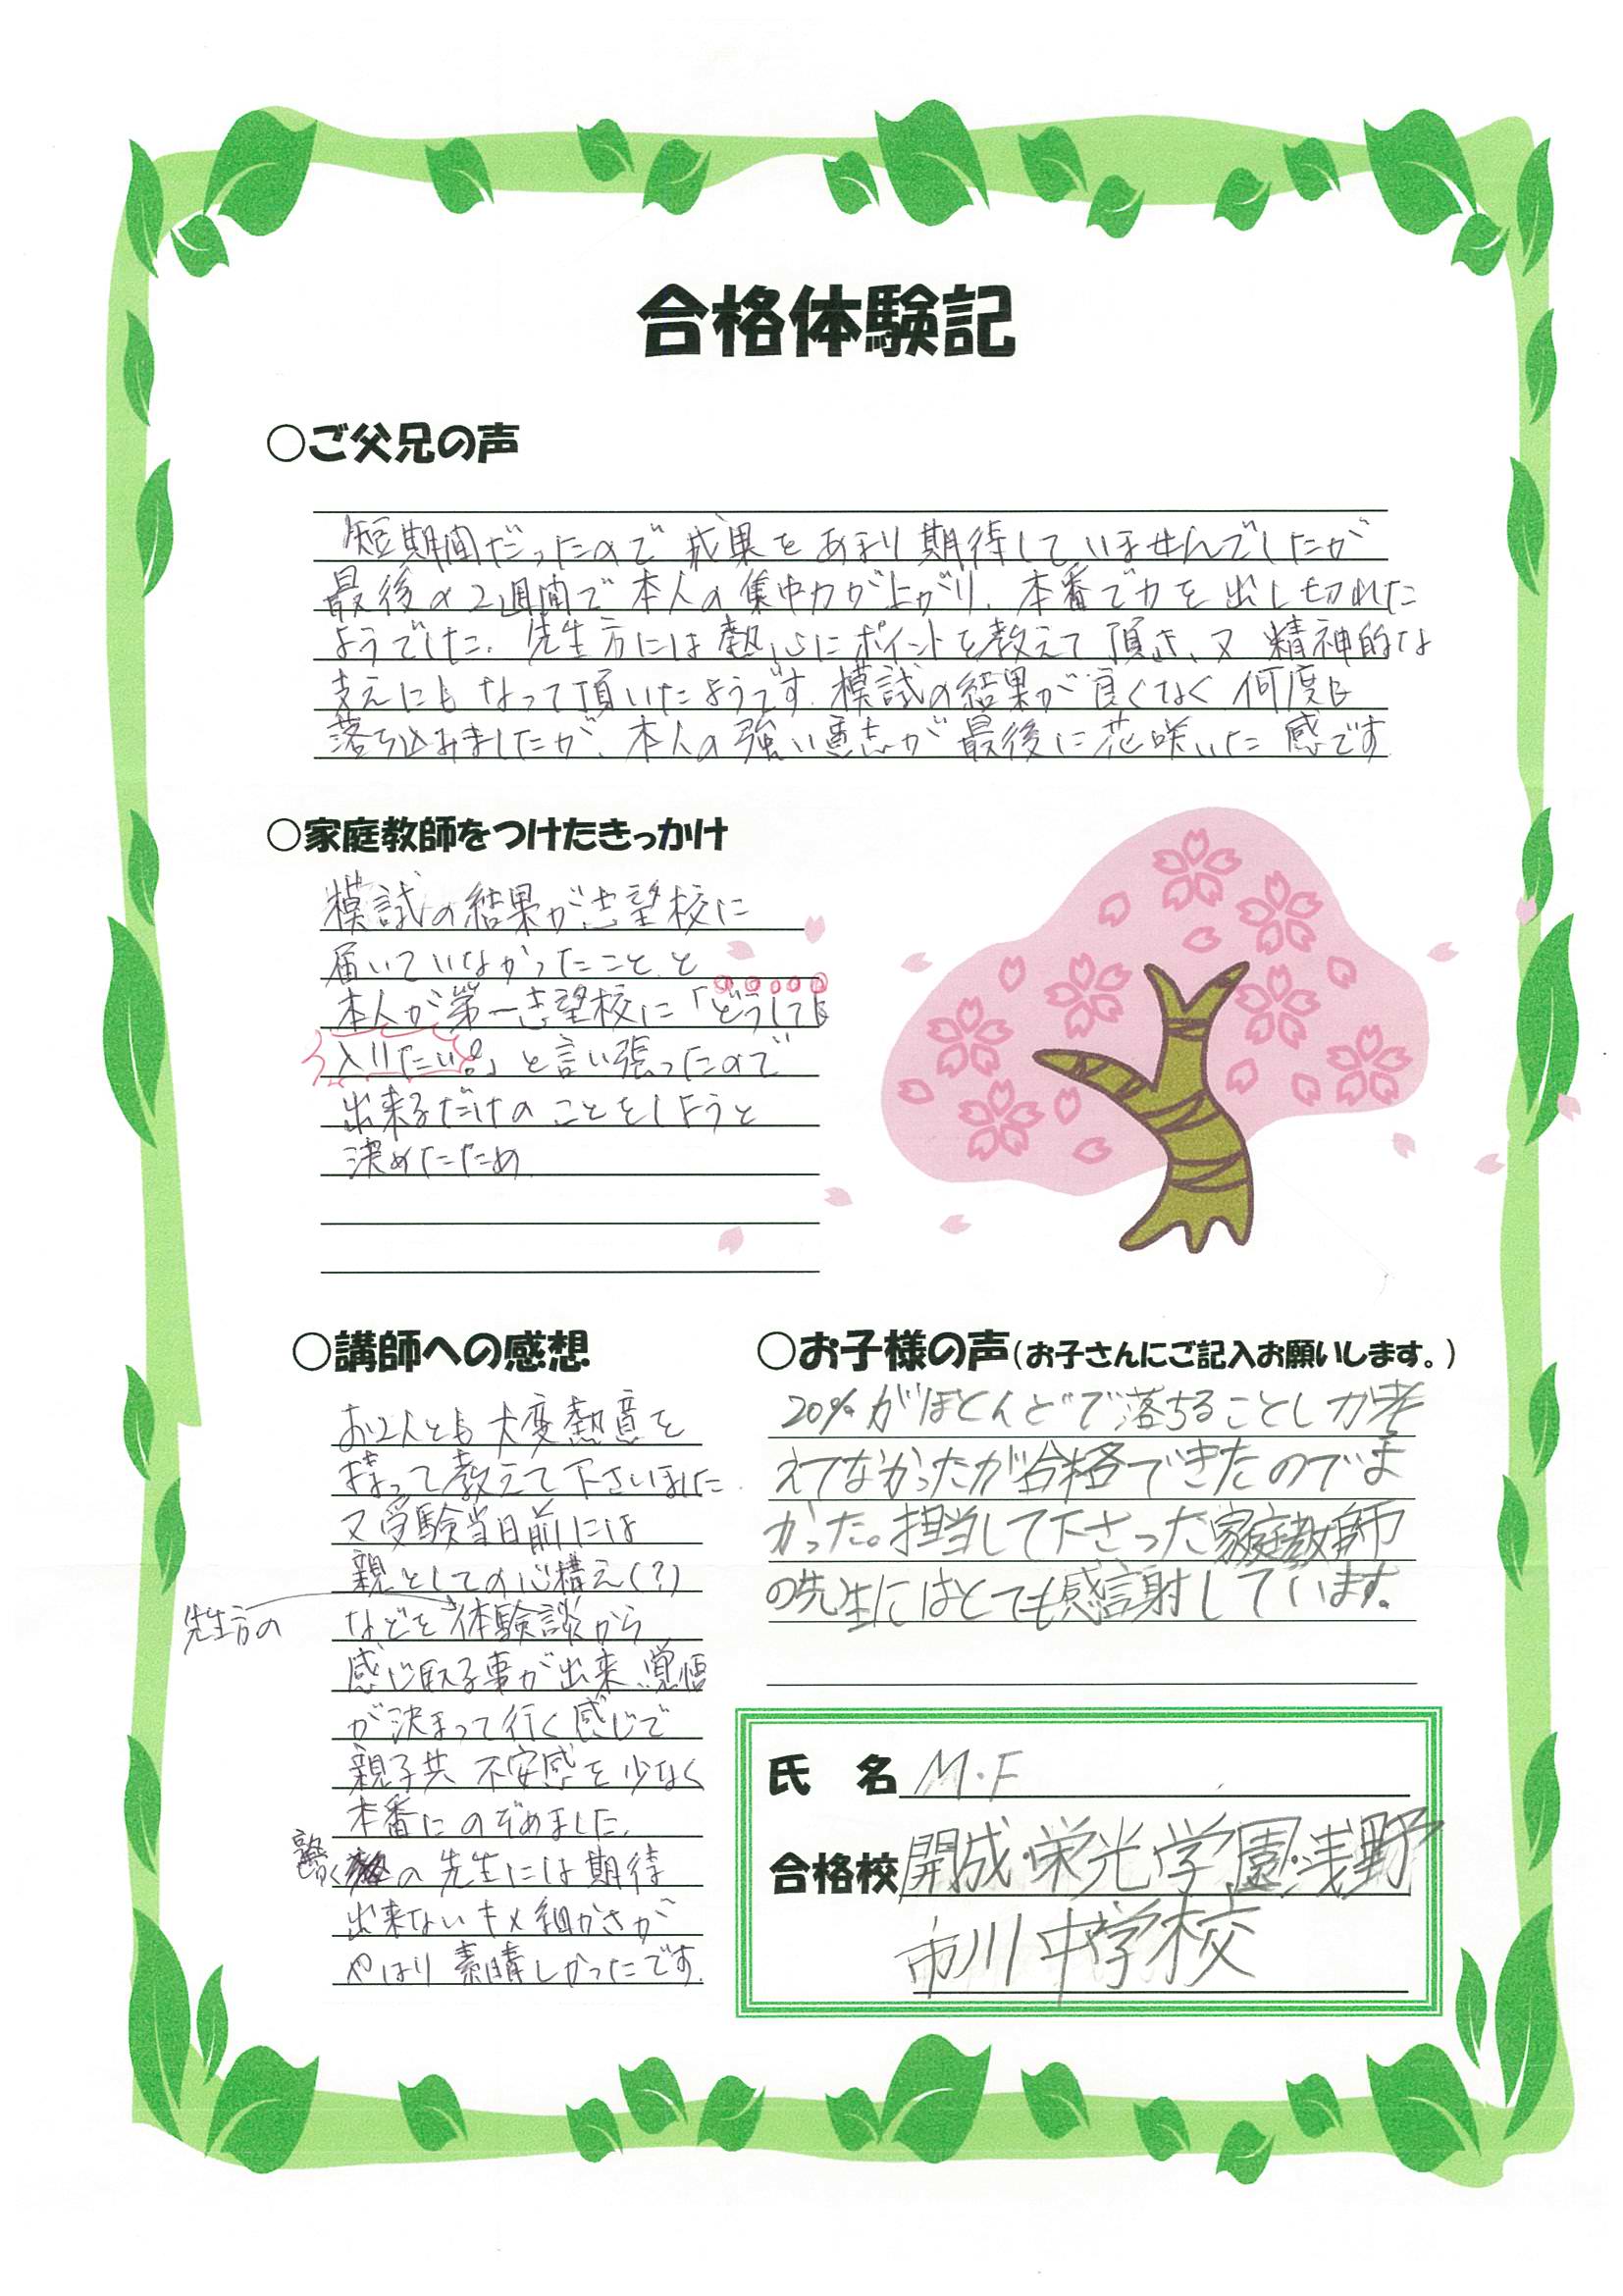 合格体験記
○ご父兄の声
短期間だったので成果をあまり期待していませんでしたが
最後の2週間で本人の集中力が上がり、本番で力を出し切れた
ようでした。先生方には熱心にポイントを教えて頂き、又精神的な
支えにもなって頂いたようです。模試の結果が良くなく何度も
落ち込みましたが、本人の強い意志が最後に花咲いた感です
○家庭教師をつけたきっかけ
模試の結果が志望校に
届いていなかったことと
本人が第一志望校に「どうしても
入りたい!」と言い張ったので
出来るだけのことをしようと
決めたため
○講師への感想
お2人とも大変熱意を
持って教えて下さいました。
又受験当日前には
親としての心構え(?)
などを体験談から
先生方の
感じ取る事が出来、覚悟
が決まって行く感じで
親子共不安感を少なく
本番にのぞめました。
の先生には期待
出来ないキメ細かさが
やはり素晴しかったです。
○お子様の声(お子さんにご記入お願いします。)
20%がほとんどで落ちることしか考
えてなかったが合格できたのでよ
かった。担当して下さった家庭教師
の先生にはとても感謝しています。
氏 名 M・F
合格校 開成・栄光学園・浅野
市川中学校